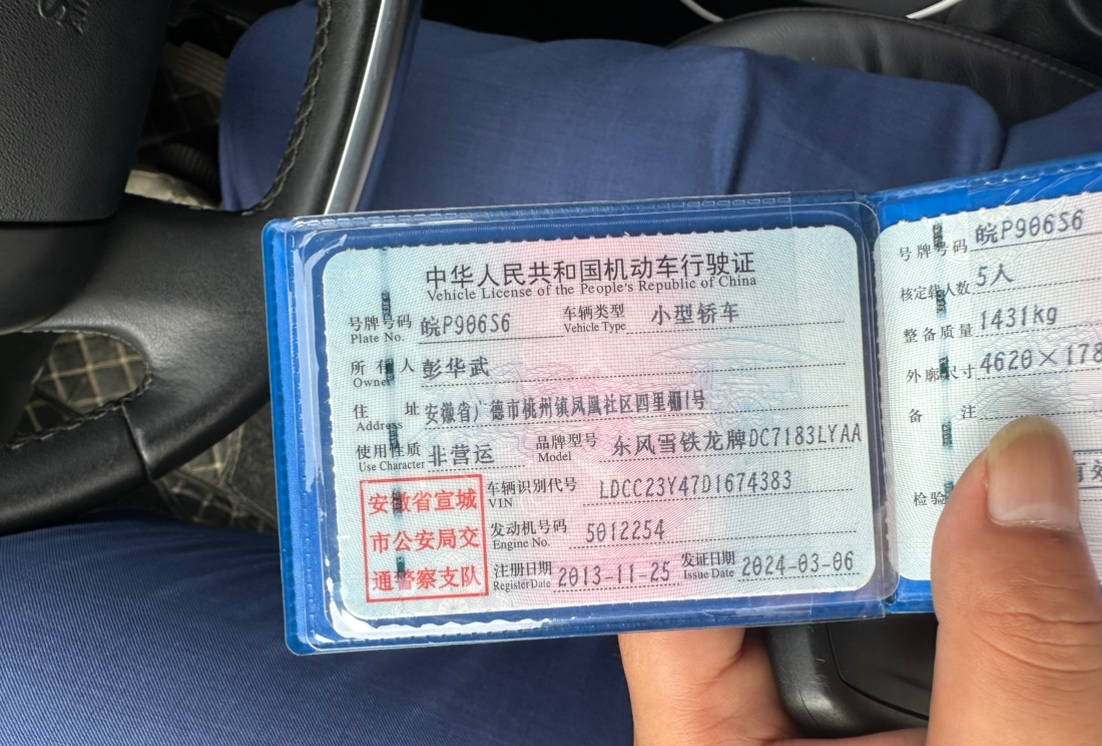 中华人民共和国机动车行驶证
Vehicle License of the People's Republic of China
号牌号码 皖P906S6 车辆类型 小型轿车
Plate No. Vehicle Type
所有人 彭华武
Owner
住址 安徽省广德市桃州镇凤凰社区四里栅1号
Address
使用性质 非营运 品牌型号 东风雪铁龙牌DC7183LYAA
Use Character Model
安徽省宣城
市公安局交
通警察支队
车辆识别代号 LDCC23Y47D1674383
VIN
发动机号码 5012254
Engine No.
注册日期 2013-11-25 发证日期 2024-03-06
Register Date Issue Date
号牌号码 皖P906S6
核定载人数 5人
整备质量 1431kg
外廓尺寸 4620×178
备注
检验